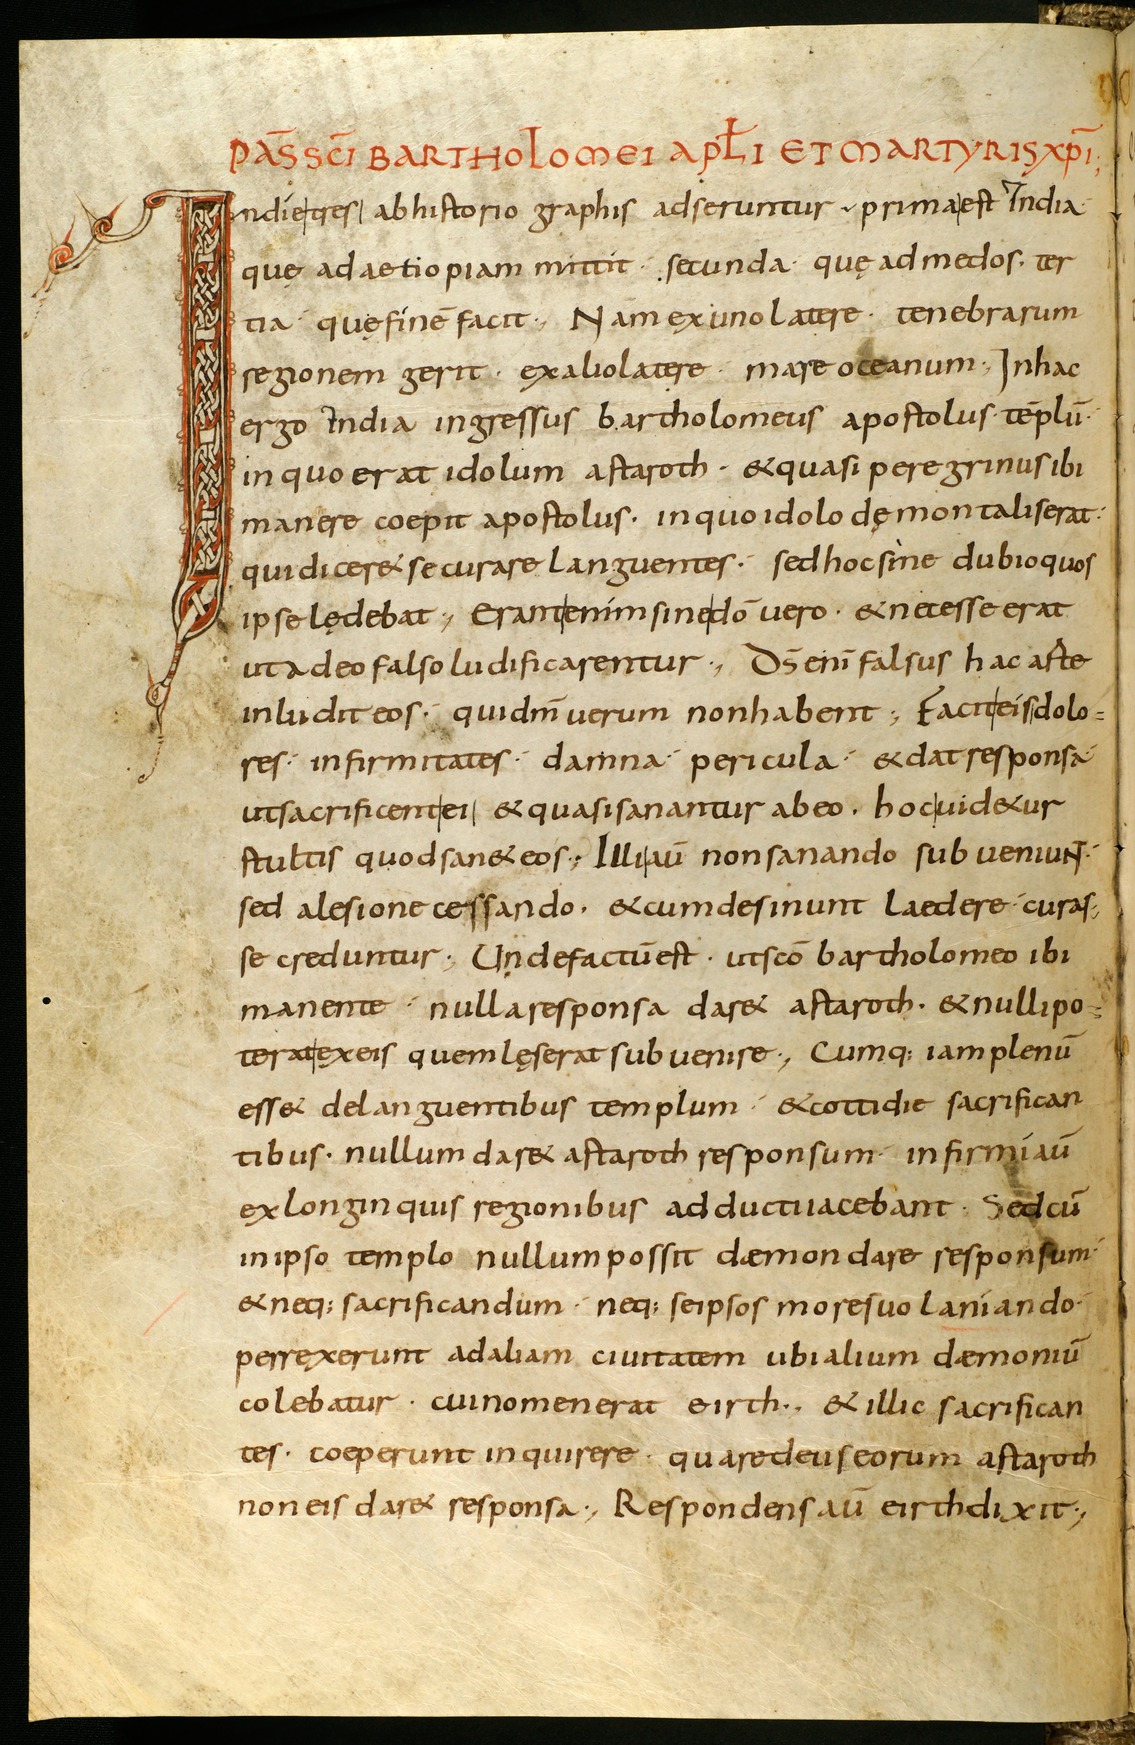 PAS̄S SC̄I BARTHOLOMEI APŁI ET MARTYRIS XP̄I;
Indię tres ab historiographis adseruntur · prima est India
quę ad aetiopiam mittit · secunda quę ad medos · ter
tia · quę finē facit ·, Nam ex uno latere · tenebrarum
regionem gerit · ex alio latere · mare oceanum ·, In hac
ergo India ingressus bartholomeus apostolus · tēplū ·
in quo erat idolum astaroth · & quasi peregrinus ibi
manere coepit apostolus · in quo idolo dęmon talis erat ·
qui dicer& se curare languentes · sed hoc sine dubio quos
ipse lędebat ·, Erant enim sine dō vero · & necesse erat
ut a deo falso ludificarentur ·, Ds̄ enī falsus hac arte
inludit eos · qui dm̄ uerum non habent ·, Facit eis dolo-
res · infirmitates · damna · pericula · & dat responsa
ut sacrificent ei & quasi sanantur ab eo · hoc uid&ur
stultis quod san& eos ·, Illi aū non sanando subueniunt ·
sed a lesione cessando · & cum desinunt laedere · curas-
se creduntur ·, Unde factū est · ut scō bartholomeo ibi
manente · nulla responsa dar& astaroth · & nulli po-
terat ex eis quem lęserat subuenire ·, Cumq; iam plenū
ess& de languentibus templum · & cottidie sacrifican
tibus · nullum dar& astaroth responsum · infirmi aū
ex longinquis regionibus adducti iacebant · Sed cū
in ipso templo nullum possit dæmon dare responsum ·
& neq; sacrificandum · neq; se ipsos more suo laniando ·
perrexerunt ad aliam ciuitatem ubi alium dæmoniū
colebatur · cui nomen erat eirth ·, & illic sacrifican
tes · coeperunt inquirere · quare deus eorum astaroth
non eis dar& responsa ·, Respondens aū eirth dixit ·,